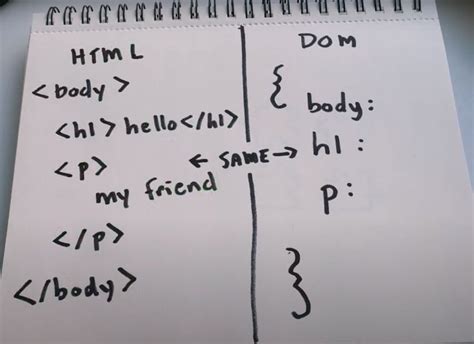 HTML
<body>
<h1> hello</h1>
<p>
my friend
</p>
</body>
← SAME →
DOM
{
body:
h1:
p:
}